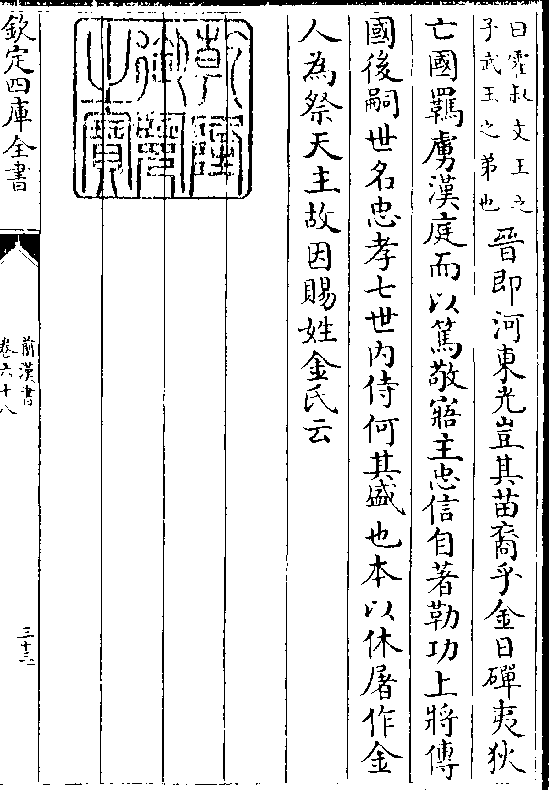 曰霍叔文王之
子武王之弟也
晉即河東光豈其苗裔乎金日磾夷狄
亡國羈虜漢庭而以篤敬寤主忠信自著勒功上將傳
國後嗣世名忠孝七世内侍何其盛也本以休屠作金
人為祭天主故因賜姓金氏云
乾隆
御覽
之寶
欽定四庫全書
前漢書
卷六十八
三十三